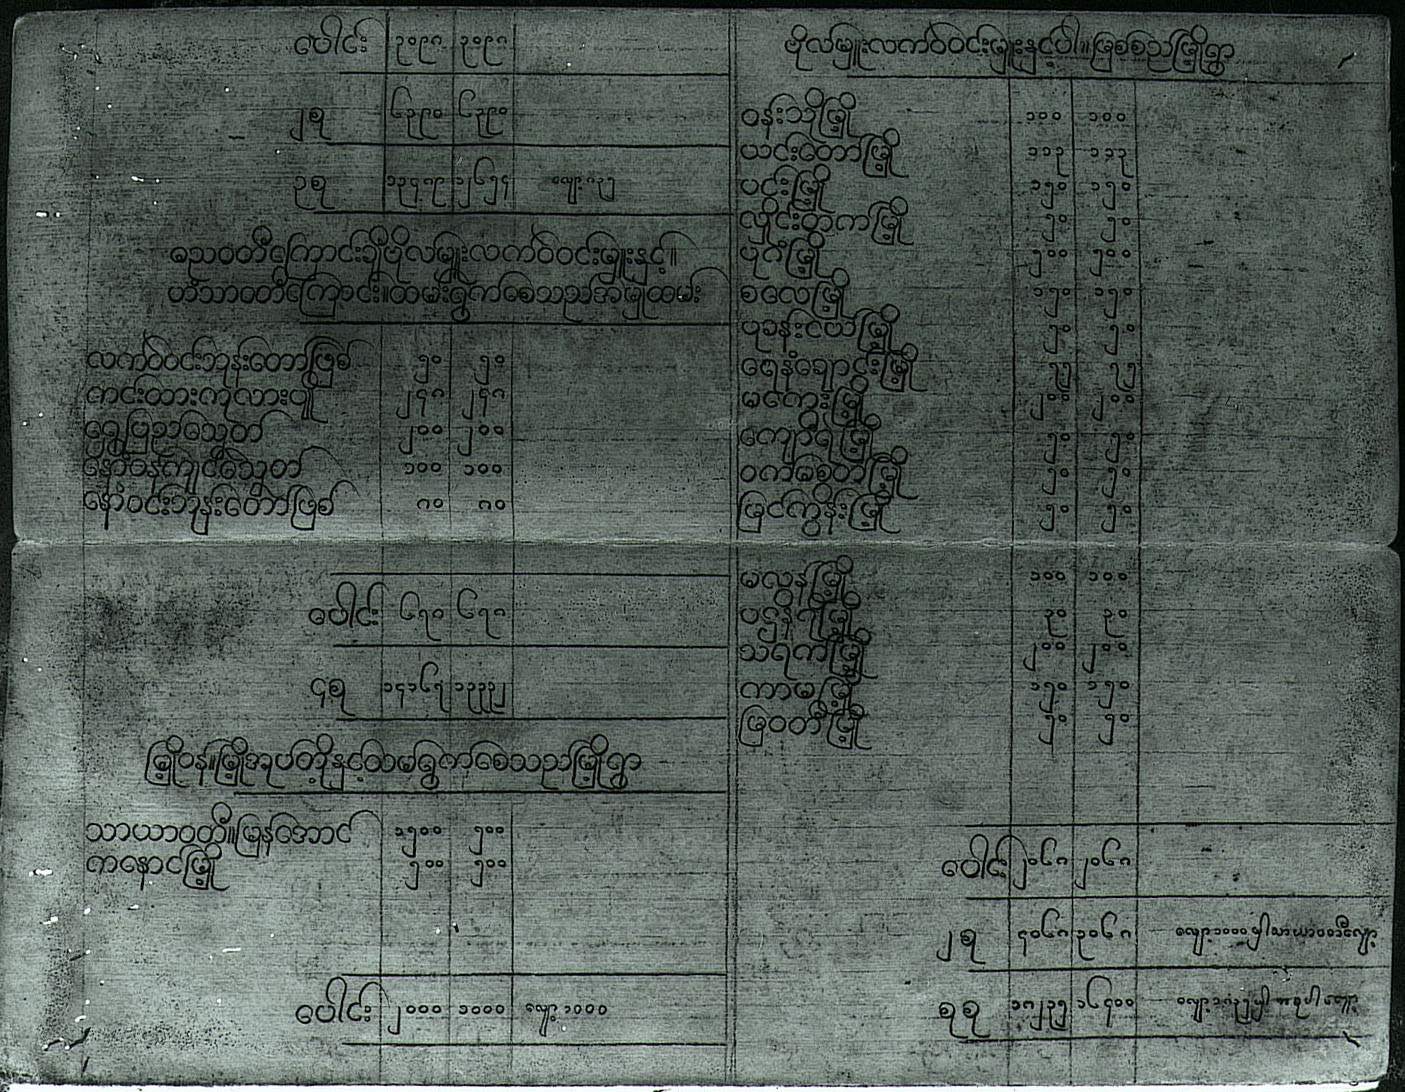 ပေါင်း ၃၀၉၈ ၃၀၉၈
၂စု ၆၃၉၀ ၆၃၉၀
၃စု ၁၃၄၈၉ ၁၂၆၅၄ လျော့ ၈၃၅
ဓညဝတီကြောင်းချီဗိုလ်မှူးလက်ဝဲဝင်းမှူးနှင့်။
ဟံသာဝတီကြောင်း။ထမ်းရွက်စေသည့်အမှုထမ်း
လက်ဝဲဝင်းဘုန်းတော်ဖြစ် ၅၀ ၅၀
ကင်းထားကုလားပျို ၂၄၈ ၂၄၈
ရွှေပြည်သွေတ် ၂၀၀ ၂၀၀
၁၀၀ ၁၀၀
နောက်ဝင်းဘုန်းတော်ဖြစ် ၈၀ ၈၀
ပေါင်း ၆၇၈ ၆၇၈
၄စု ၁၄၁၆၇ ၁၃၃၃၂
မြို့ဝန်။မြို့အုပ်တို့နှင့်ထမ်းရွက်စေသည့်မြို့ရွာ
သာယာဝတီ။မြန်အောင် ၁၅၀၀ ၅၀၀
ကနောင်မြို့ ၅၀၀ ၅၀၀
ပေါင်း ၂၀၀၀ ၁၀၀၀ လျော့ ၁၀၀၀
ဗိုလ်မှူးလက်ဝဲဝင်းမှူးနှင့်ပါ။မြစ်စဉ်မြို့ရွာ
ဝန်းသိုမြို့ ၁၀၀ ၁၀၀
ယင်းတော်မြို့ ၁၁၃ ၁၁၃
ပင်းမြို့ ၁၅၀ ၁၅၀
လှိုင်းတက်မြို့ ၅၀ ၅၀
ပုဂံမြို့ ၅၀၀ ၅၀၀
စလေမြို့ ၁၅၀ ၁၅၀
ပုခန်းငယ်မြို့ ၅၀ ၅၀
ရေနံချောင်းမြို့ ၇၅ ၇၅
မကွေးမြို့ ၂၀၀ ၂၀၀
ကျော်ရဲမြို့ ၅၀ ၅၀
ဝက်မစွတ်မြို့ ၅၀ ၅၀
မြင်ကွန်းမြို့ ၅၀ ၅၀
မလွန်မြို့ ၁၀၀ ၁၀၀
ပဋနဂိုမြို့ ၃၀ ၃၀
သရက်မြို့ ၂၀၀ ၂၀၀
ကာမမြို့ ၁၅၀ ၁၅၀
မြဝတီမြို့ ၅၀ ၅၀
ပေါင်း ၂၀၆၈ ၂၀၆၈
၂ စု ၄၀၆၈ ၃၀၆၈ လျော့ ၁၀၀၀ မှာသာယာဝတီလျော့
စုစု ၁၈၂၃၅ ၁၆၄၀၀ လျော့ ၁၈၃၅ မှာ